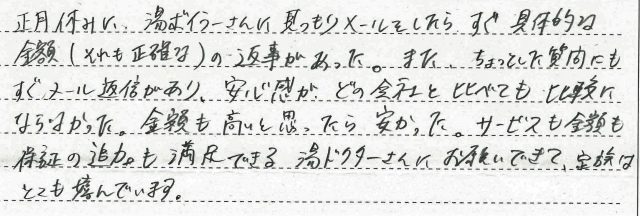 正月休みに、湯ボイラーさんに見つもりメールをしたら すぐ 具体的な
金額（それも正確な）の返事があった。また、ちょっとした質問にも
すぐメール返信があり、安心感が どの会社と比べても 比較に
ならなかった。金額も高いと思ったら安かった。サービスも金額も
保証の追加も満足できる 湯ドクターさんにお願いできて、家族は
とても喜んでいます。